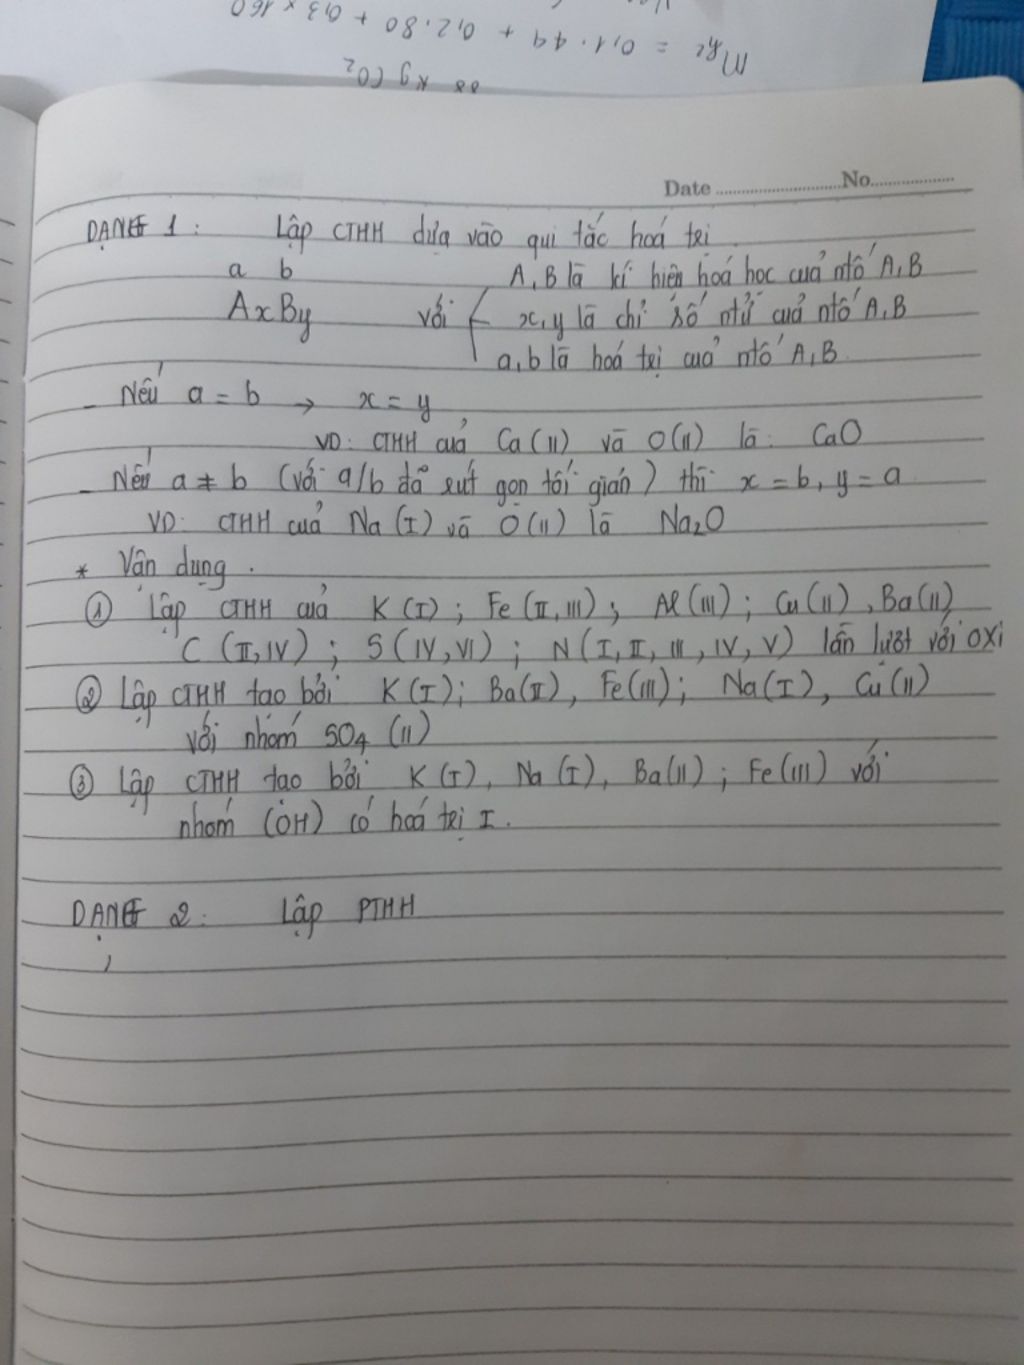 08 Kg CO2
Mhh = 0,1.44 + 0,2.80 + 0,3 x 160
Date No
DẠNG 1: Lập CTHH dựa vào qui tắc hoá trị
a b A, B là kí hiệu hoá học cuả ntố A, B
AxBy với { x, y là chỉ số ntử cuả ntố A, B
a, b là hoá trị cuả ntố A, B.
- Nếu a = b → x = y
VD: CTHH cuả Ca (II) và O(II) là: CaO
- Nếu a ≠ b (với a/b đã rút gọn tối giản) thì x = b, y = a
VD: CTHH cuả Na (I) và O (II) là Na2O
* Vận dụng.
① Lập CTHH cuả K (I); Fe (II, III); Al (III); Cu (II), Ba (II)
C (II, IV); S (IV, VI); N (I, II, III, IV, V) lần lượt với oxi
② Lập CTHH tạo bởi K (I); Ba (II), Fe (III); Na (I), Cu (II)
với nhóm SO4 (II)
③ Lập CTHH tạo bởi K (I), Na (I), Ba (II); Fe (III) với
nhóm (OH) có hoá trị I.
DẠNG 2: Lập PTHH